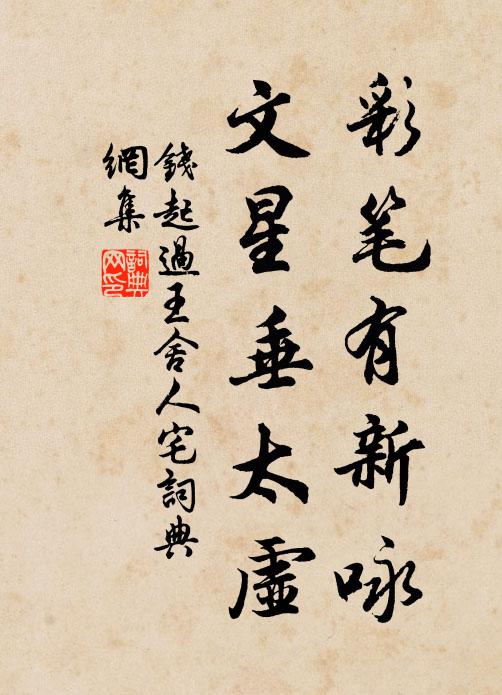 彩笔有新咏
文星垂太虛
錢起過王舍人宅詞典
網集
詞典网印